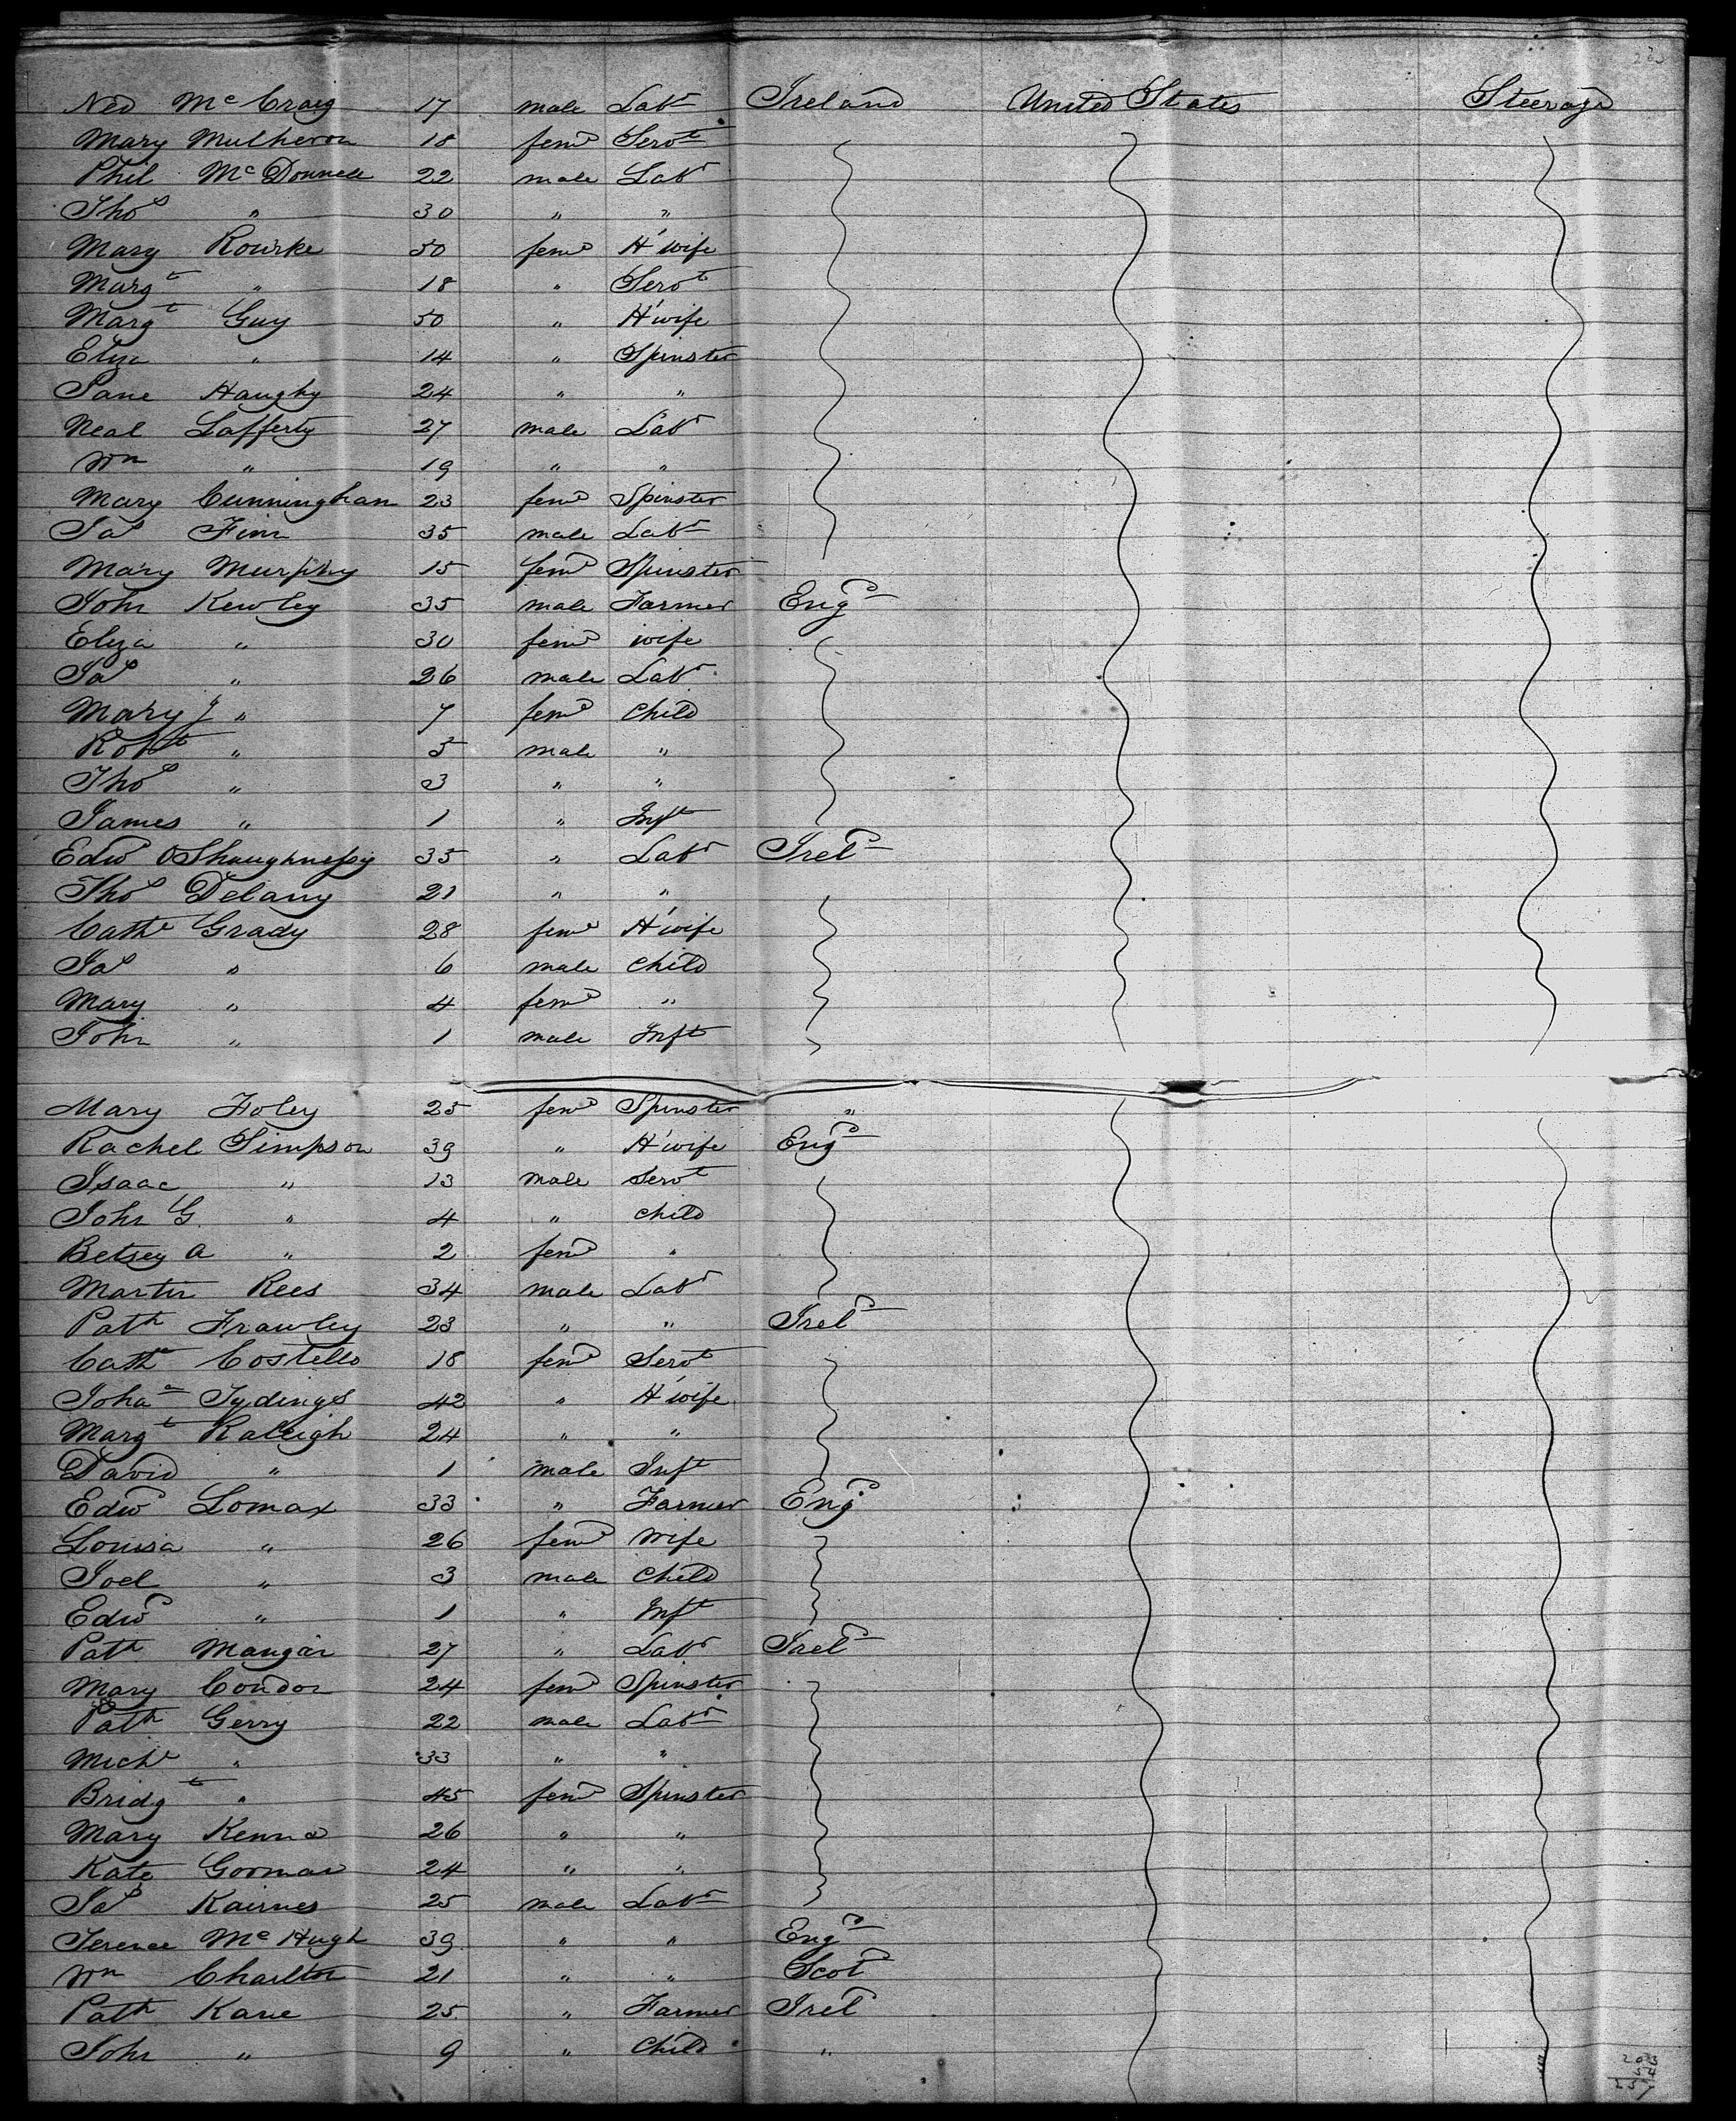 Ned McCraig 17 male Labr Ireland United States Steerage
Mary Mulheron 18 femle Servt
Phil McDonnell 22 male Labr
Thos " 30 " "
Mary Rourke 50 femle H'wife
Margt " 18 " Servt
Margt Guy 50 " H'wife
Eliza " 14 " Spinster
Jane Haughy 24 " "
Neal Lafferty 27 male Labr
Wm " 19 " "
Mary Cunningham 23 femle Spinster
Jas Finn 35 male Labr
Mary Murphy 15 femle Spinster
John Kewley 35 male Farmer Engd
Eliza " 30 femle wife
Jas " 26 male Labr
Mary J " 7 femle child
Robt " 5 male "
Thos " 3 " "
James " 1 " Inft
Edwd OShaughnessy 35 " Labr Ireld
Thos Delany 21 " "
Cathe Grady 28 femle H'wife
Jas " 6 male child
Mary " 4 femle "
John " 1 male Inft
Mary Foley 25 femle Spinster "
Rachel Simpson 39 " H'wife Engd
Isaac " 13 male Servt
John G. " 4 " child
Betsey A " 2 femle "
Martin Rees 34 male Labr
Patk Frawley 23 " " Ireld
Cathe Costello 18 femle Servt
Johana Tydings 42 " H'wife
Margt Raleigh 24 " "
David " 1 male Inft
Edwd Lomax 33 " Farmer Engd
Louisa " 26 femle wife
Joel " 3 male child
Edwd " 1 " Inft
Patk Mangan 27 " Labr Ireld
Mary Condon 24 femle Spinster
Patk Gerry 22 male Labr
Michl " 33 " "
Bridgt " 45 femle Spinster
Mary Kenna 26 " "
Kate Gorman 24 " "
Jas Kairnes 25 male Labr
Terence McHugh 39 " " Engd
Wm Charlton 21 " " Scotd
Patk Kane 25 " Farmer Ireld
John " 9 " Child "
203
54
257